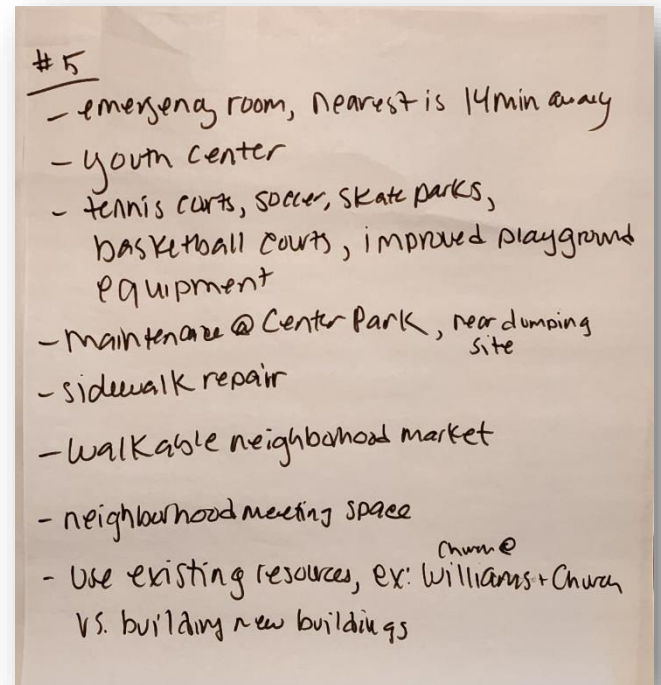 #5
- emergency room, nearest is 14min away
- youth center
- tennis curts, soccer, skate parks,
basketball courts, improved playground
equipment
- maintenance @ Center Park, near dumping
site
- sidewalk repair
- walkable neighborhood market
- neighbourhood meeting space
Church @
- Use existing resources, ex: Williams + Church
vs. building new buildings